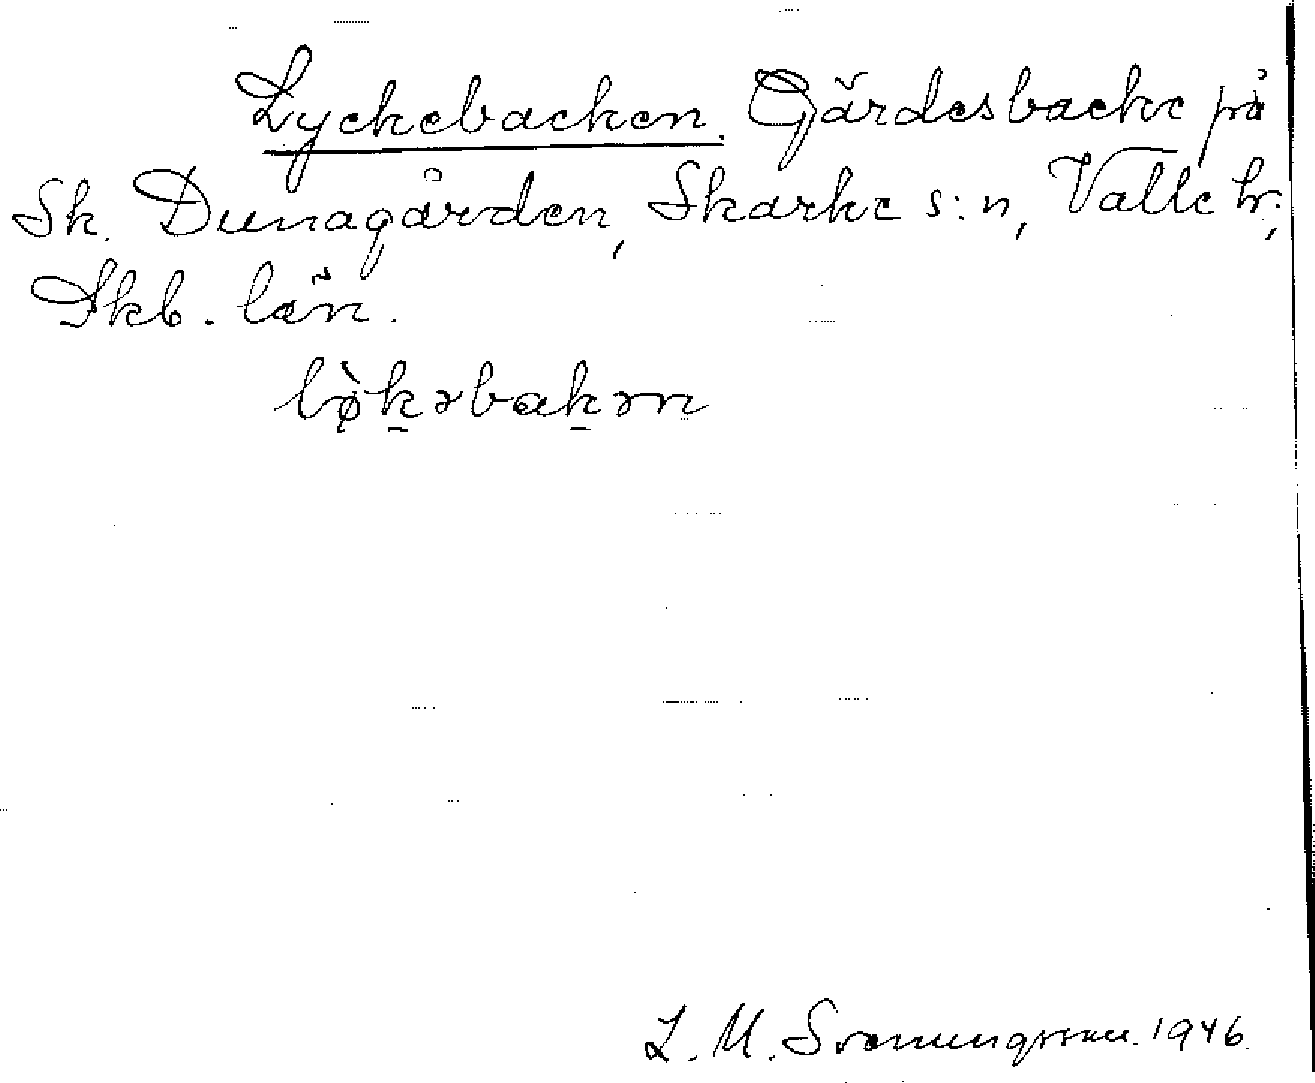 Lyckebacken. Gärdesbacke på
Sk. Dunagården, Skarke s:n, Valle hr;
Skb. län.
lø̀k̠əbak̠ən
L. M. Svenungsson. 1946